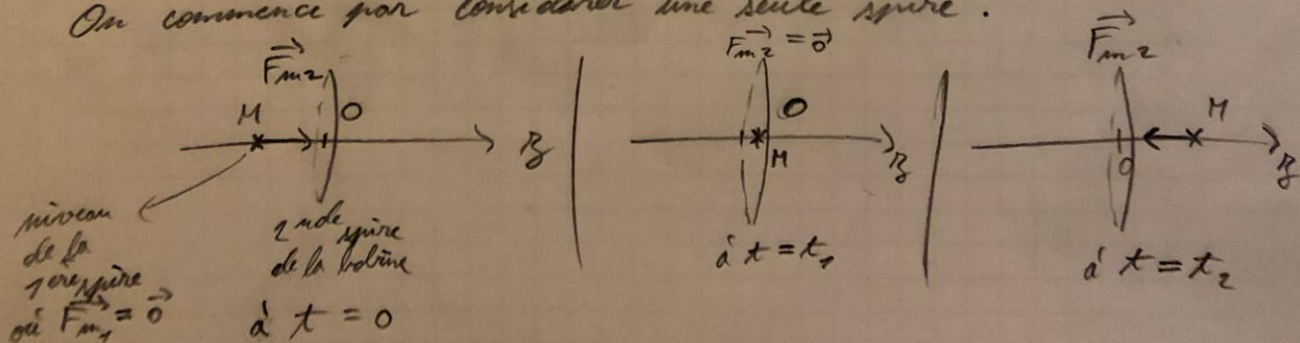 On commence par considérer une seule spire.
Fm2
M
O
z
niveau
de la
1ere spire
où Fm1 = 0
2nde spire
de la bobine
à t = 0
Fm2 = 0
O
M
z
à t = t1
Fm2
M
O
z
à t = t2